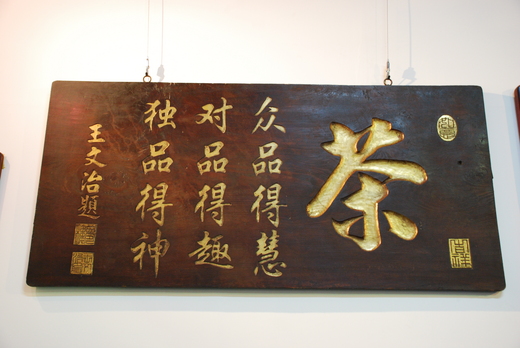 茶
众品得慧
对品得趣
独品得神
王文治題